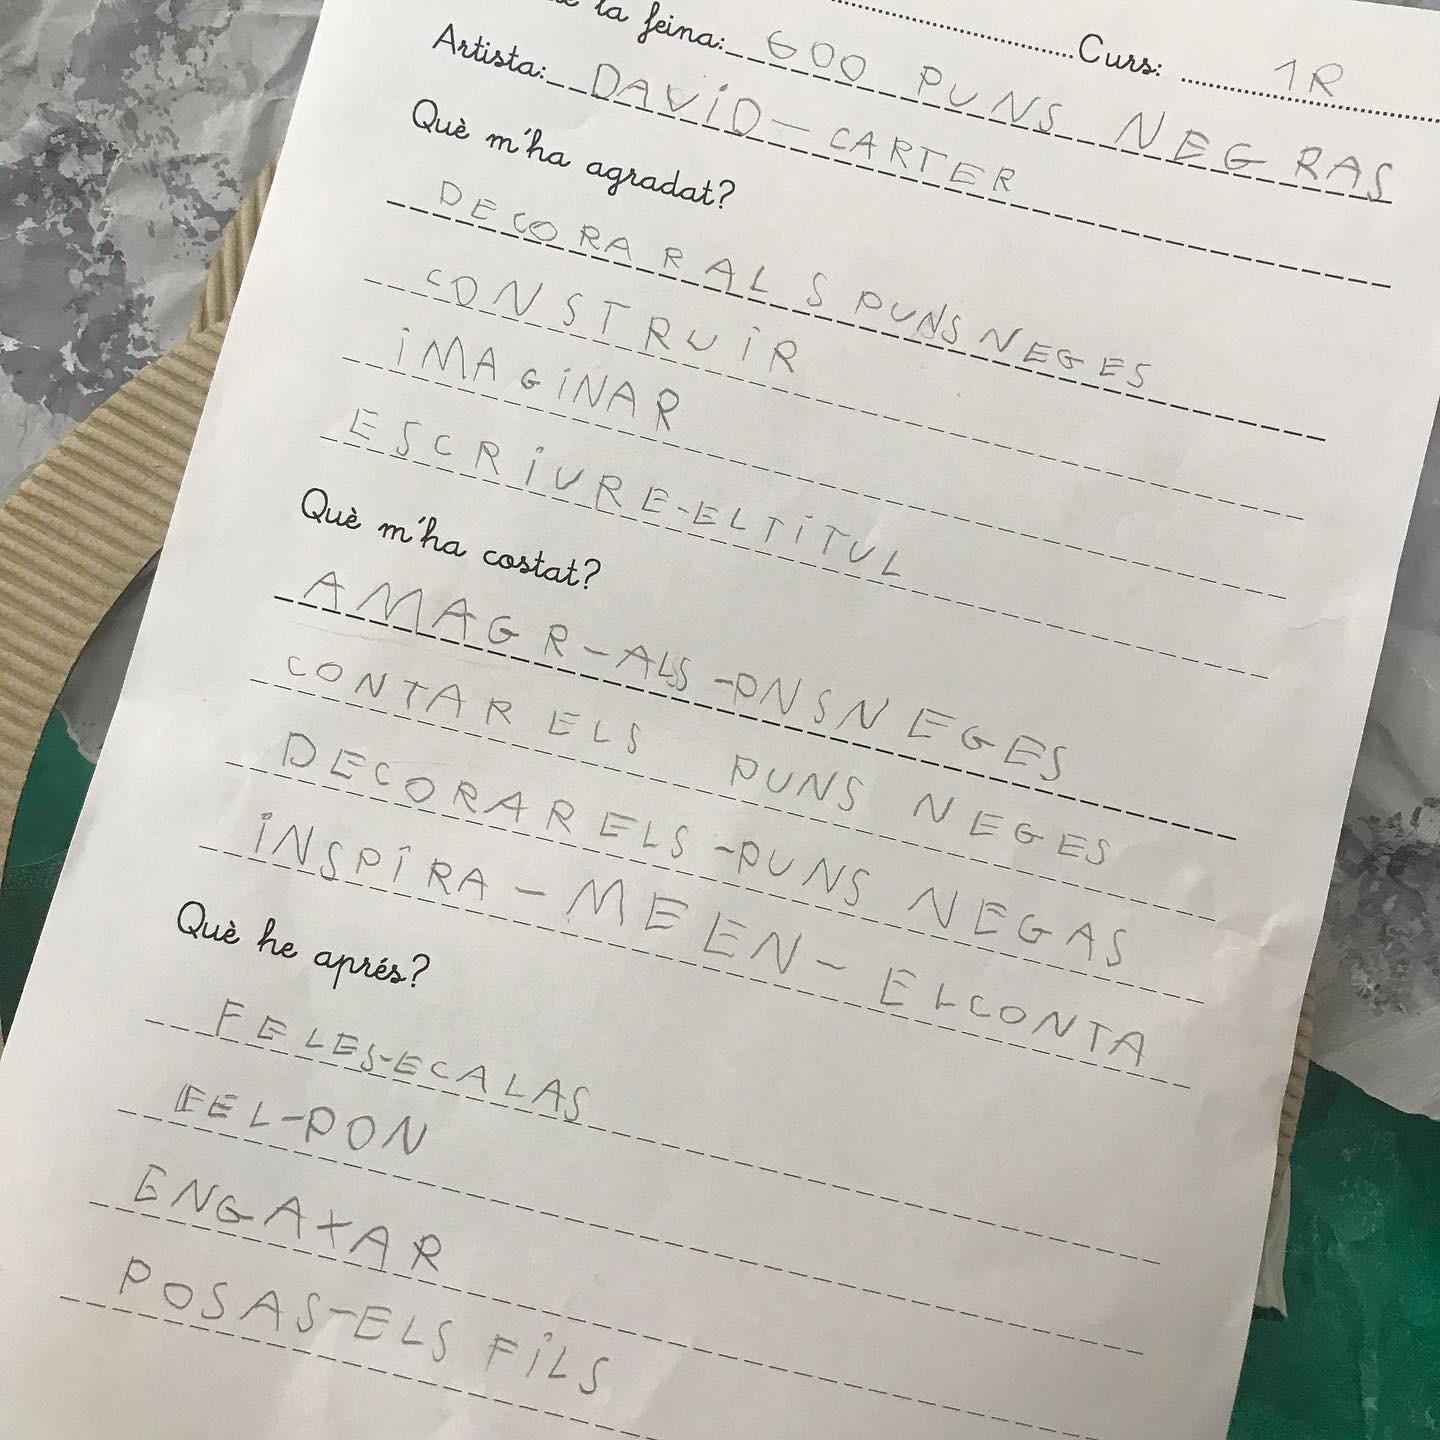 Curs: 1R
la feina: 600 PUNS NEGRAS
Artista: DAViD-CARTER
Què m'ha agradat?
DECORAR ALS PUNS NEGES
CONSTRUiR
iMAGiNAR
ESCRiURE-EL TiTUL
Què m'ha costat?
AMAGR-ALS-PNS NEGES
CONTAR ELS PUNS NEGES
DECORAR ELS-PUNS NEGAS
iNSPiRA-ME EN-EL CONTA
Què he aprés?
FE LES-ECALAS
FEL-PON
ENGAXAR
POSAS-ELS FiLS